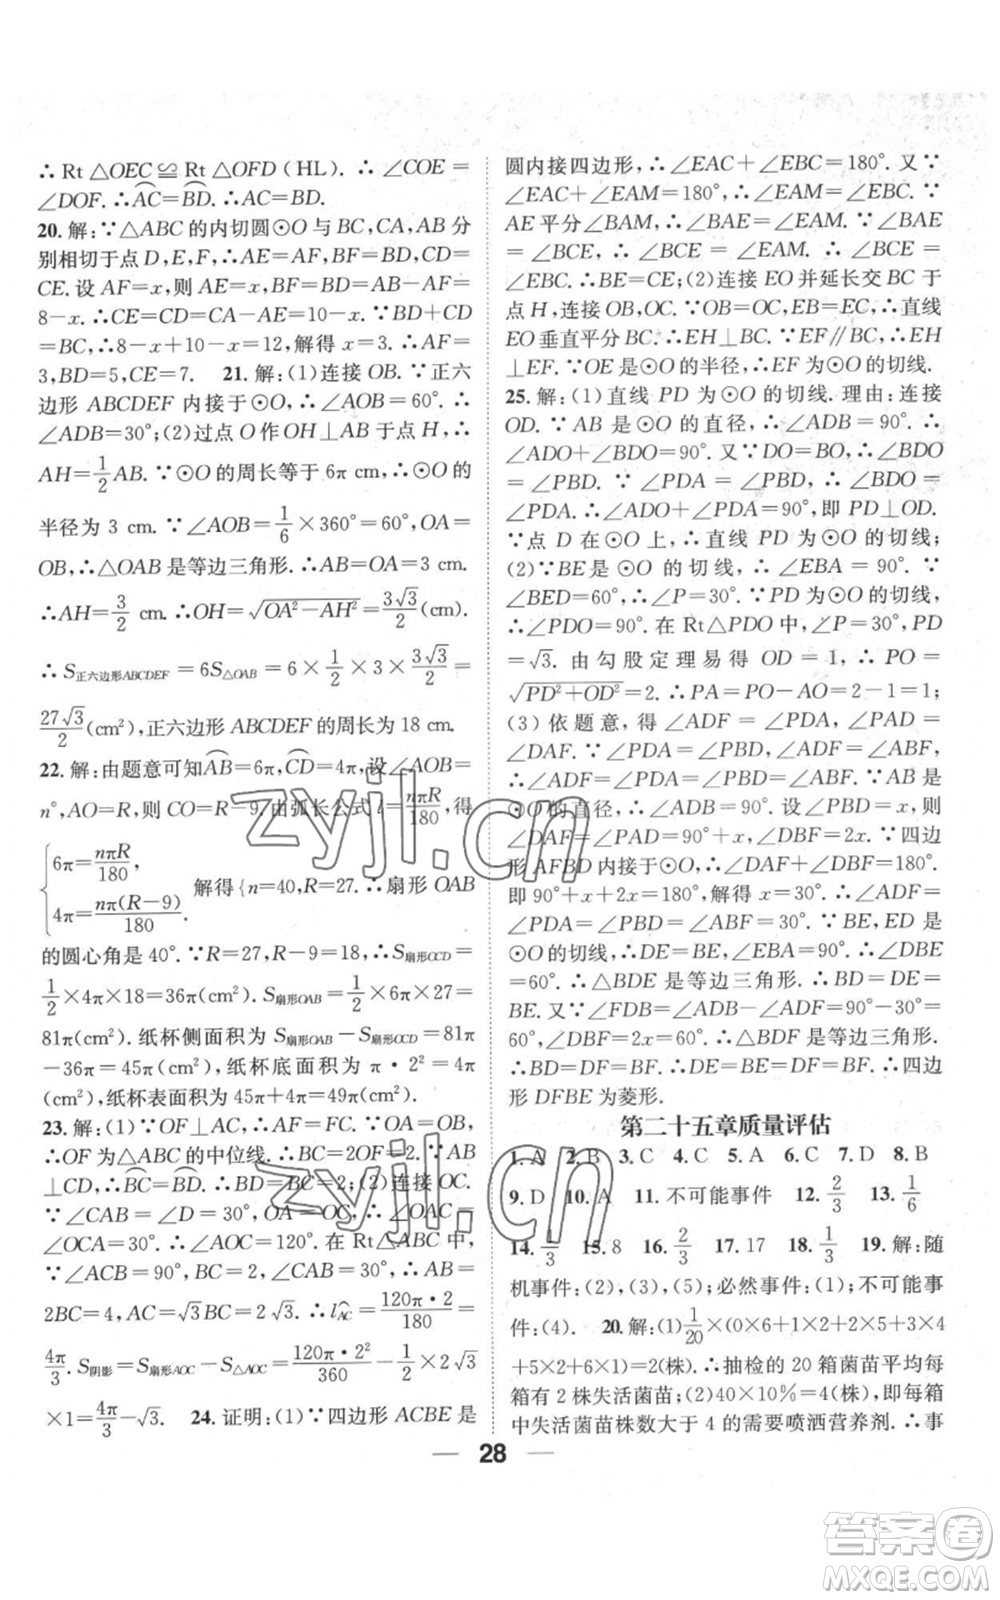 ∴ Rt △OEC ≌ Rt △OFD (HL). ∴ ∠COE =
∠DOF. ∴⌒AC=⌒BD. ∴AC=BD.
20. 解:∵△ABC 的内切圆⊙O 与 BC,CA,AB 分
别相切于点 D,E,F,∴AF=AE,BF=BD,CD=
CE. 设 AF=x,则 AE=x,BF=BD=AB-AF=
8-x. ∴CE=CD=CA-AE=10-x. ∵BD+CD
=BC,∴8-x+10-x=12,解得 x=3. ∴AF=
3,BD=5,CE=7. 21. 解:(1)连接 OB. ∵正六
边形 ABCDEF 内接于⊙O,∴∠AOB=60°. ∴
∠ADB=30°;(2)过点 O 作 OH⊥AB 于点 H,∴
AH=1/2AB. ∵⊙O 的周长等于 6π cm,∴⊙O 的
半径为 3 cm. ∵∠AOB=1/6×360°=60°,OA=
OB,∴△OAB 是等边三角形. ∴AB=OA=3 cm.
∴AH=3/2 cm. ∴OH=√(OA²-AH²)=3√3/2(cm).
∴S正六边形ABCDEF=6S△OAB=6×1/2×3×3√3/2=
27√3/2(cm²),正六边形 ABCDEF 的周长为 18 cm.
22. 解:由题意可知⌒AB=6π,⌒CD=4π,设∠AOB=
n°,AO=R,则 CO=R-9.由弧长公式 l=nπR/180,得
{6π=nπR/180, 4π=nπ(R-9)/180. 解得{n=40,R=27. ∴扇形 OAB
的圆心角是 40°. ∵R=27,R-9=18,∴S扇形OCD=
1/2×4π×18=36π(cm²),S扇形OAB=1/2×6π×27=
81π(cm²). 纸杯侧面积为 S扇形OAB-S扇形OCD=81π
-36π=45π(cm²),纸杯底面积为 π·2²=4π
(cm²),纸杯表面积为 45π+4π=49π(cm²).
23. 解:(1)∵OF⊥AC,∴AF=FC. ∵OA=OB,
∴OF 为△ABC 的中位线. ∴BC=2OF=2. ∵
⌒BC=⌒BD. ∴BD=BC=2;(2)连接 OC. ∵⌒BC=⌒BD.
∴∠CAB=∠D=30°, OA=OC. ∴∠OAC=
∠OCA=30°. ∴∠AOC=120°. 在 Rt△ABC 中,
∵∠ACB=90°,∠CAB=30°,BC=2,∴AB=
2BC=4,AC=√3BC=2√3. ∴l⌒AC=120π·2/180=
4π/3. S阴影=S扇形AOC-S△AOC=120π·2²/360-1/2×2√3
×1=4π/3-√3. 24. 证明:(1)∵四边形 ACBE 是
圆内接四边形,∴∠EAC+∠EBC=180°. 又∵
∠EAC+∠EAM=180°,∴∠EAM=∠EBC. ∵
AE 平分∠BAM,∴∠BAE=∠EAM. ∵∠BAE
=∠BCE, ∴∠BCE = ∠EAM. ∴∠EBC =
∠BCE. ∴BE=CE;(2)连接 EO 并延长交 BC 于
点 H,连接 OB,OC. ∵OB=OC,EB=EC,∴直线
EO 垂直平分 BC. ∴EH⊥BC. ∵EF∥BC,∴EH
⊥EF. ∵OE 是⊙O 的半径,∴EF 为⊙O 的切线.
25. 解:(1)直线 PD 为⊙O 的切线. 理由:连接
OD. ∵AB 是⊙O 的直径,∴∠ADB=90°.
∴∠ADO+∠BDO=90°. 又∵DO=BO,∴∠BDO
=∠PBD. ∵∠PDA=∠PBD, ∴∠BDO =
∠PDA. ∴∠ADO+∠PDA=90°,即 PD⊥OD.
∵点 D 在⊙O 上,∴直线 PD 为⊙O 的切线;
(2)∵BE是⊙O 的切线,∴∠EBA = 90°. ∵
∠BED=60°,∴∠P=30°. ∵PD为⊙O 的切线,
∴∠PDO=90°. 在 Rt△PDO 中,∠P=30°,PD
=√3. 由勾股定理易得 OD = 1, ∴ PO =
√(PD²+OD²)=2. ∴PA=PO-AO=2-1=1;
(3) 依题意, 得 ∠ADF = ∠PDA, ∠PAD =
∠DAF. ∵∠PDA=∠PBD,∠ADF=∠ABF,∴
∠ADF=∠PDA=∠PBD=∠ABF. ∵AB 是
⊙O 的直径,∴∠ADB=90°. 设∠PBD=x,则
∠DAF=∠PAD=90°+x,∠DBF=2x. ∵四边
形 AFBD 内接于⊙O,∴∠DAF+∠DBF=180°.
即 90°+x+2x=180°,解得 x=30°. ∴∠ADF=
∠PDA=∠PBD=∠ABF=30°. ∵BE,ED 是
⊙O 的切线,∴DE=BE,∠EBA=90°. ∴∠DBE
=60°. ∴△BDE 是等边三角形. ∴BD=DE=
BE. 又∵∠FDB=∠ADB-∠ADF=90°-30°=
60°,∠DBF=2x=60°,∴△BDF 是等边三角形.
∴BD=DF=BF. ∴DE=BE=DF=BF. ∴四边
形 DFBE 为菱形.
第二十五章质量评估
1. A 2. B 3. C 4. C 5. A 6. C 7. D 8. B
9. D 10. A 11. 不可能事件 12. 2/3 13. 1/6
14. 1/3 15. 8 16. 2/3 17. 17 18. 1/3 19. 解:随
机事件:(2),(3),(5);必然事件:(1);不可能事
件:(4). 20. 解:(1)1/20×(0×6+1×2+2×5+3×4
+5×2+6×1)=2(株). ∴抽检的 20 箱菌苗平均每
箱有 2 株失活菌苗;(2)40×10%=4(株),∴每箱
中失活菌苗株数大于 4 的需要喷洒营养剂. ∴事
28
zyjl.cn
zyjl.cn
答案圈
MXQE.COM